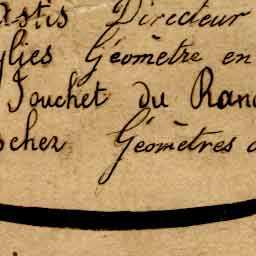 astis Directeur
ylies Géomètre en
Jouchet du Ran
schez Géomètres d